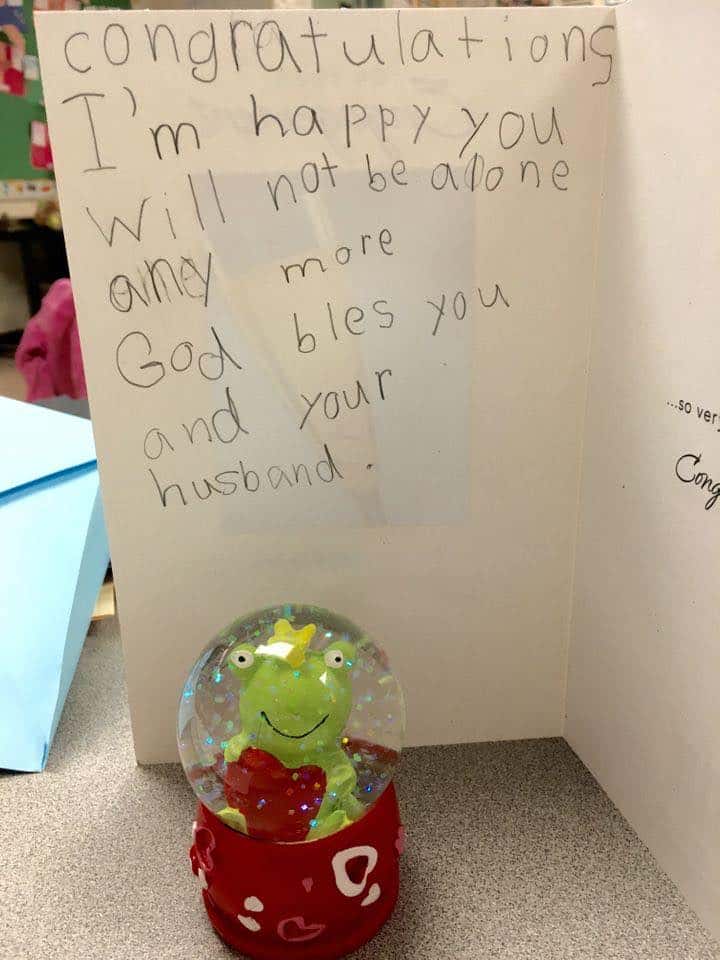 congratulations
I'm happy you
will not be alone
amey more
God bles you
and your
husband.
...so very
Cong